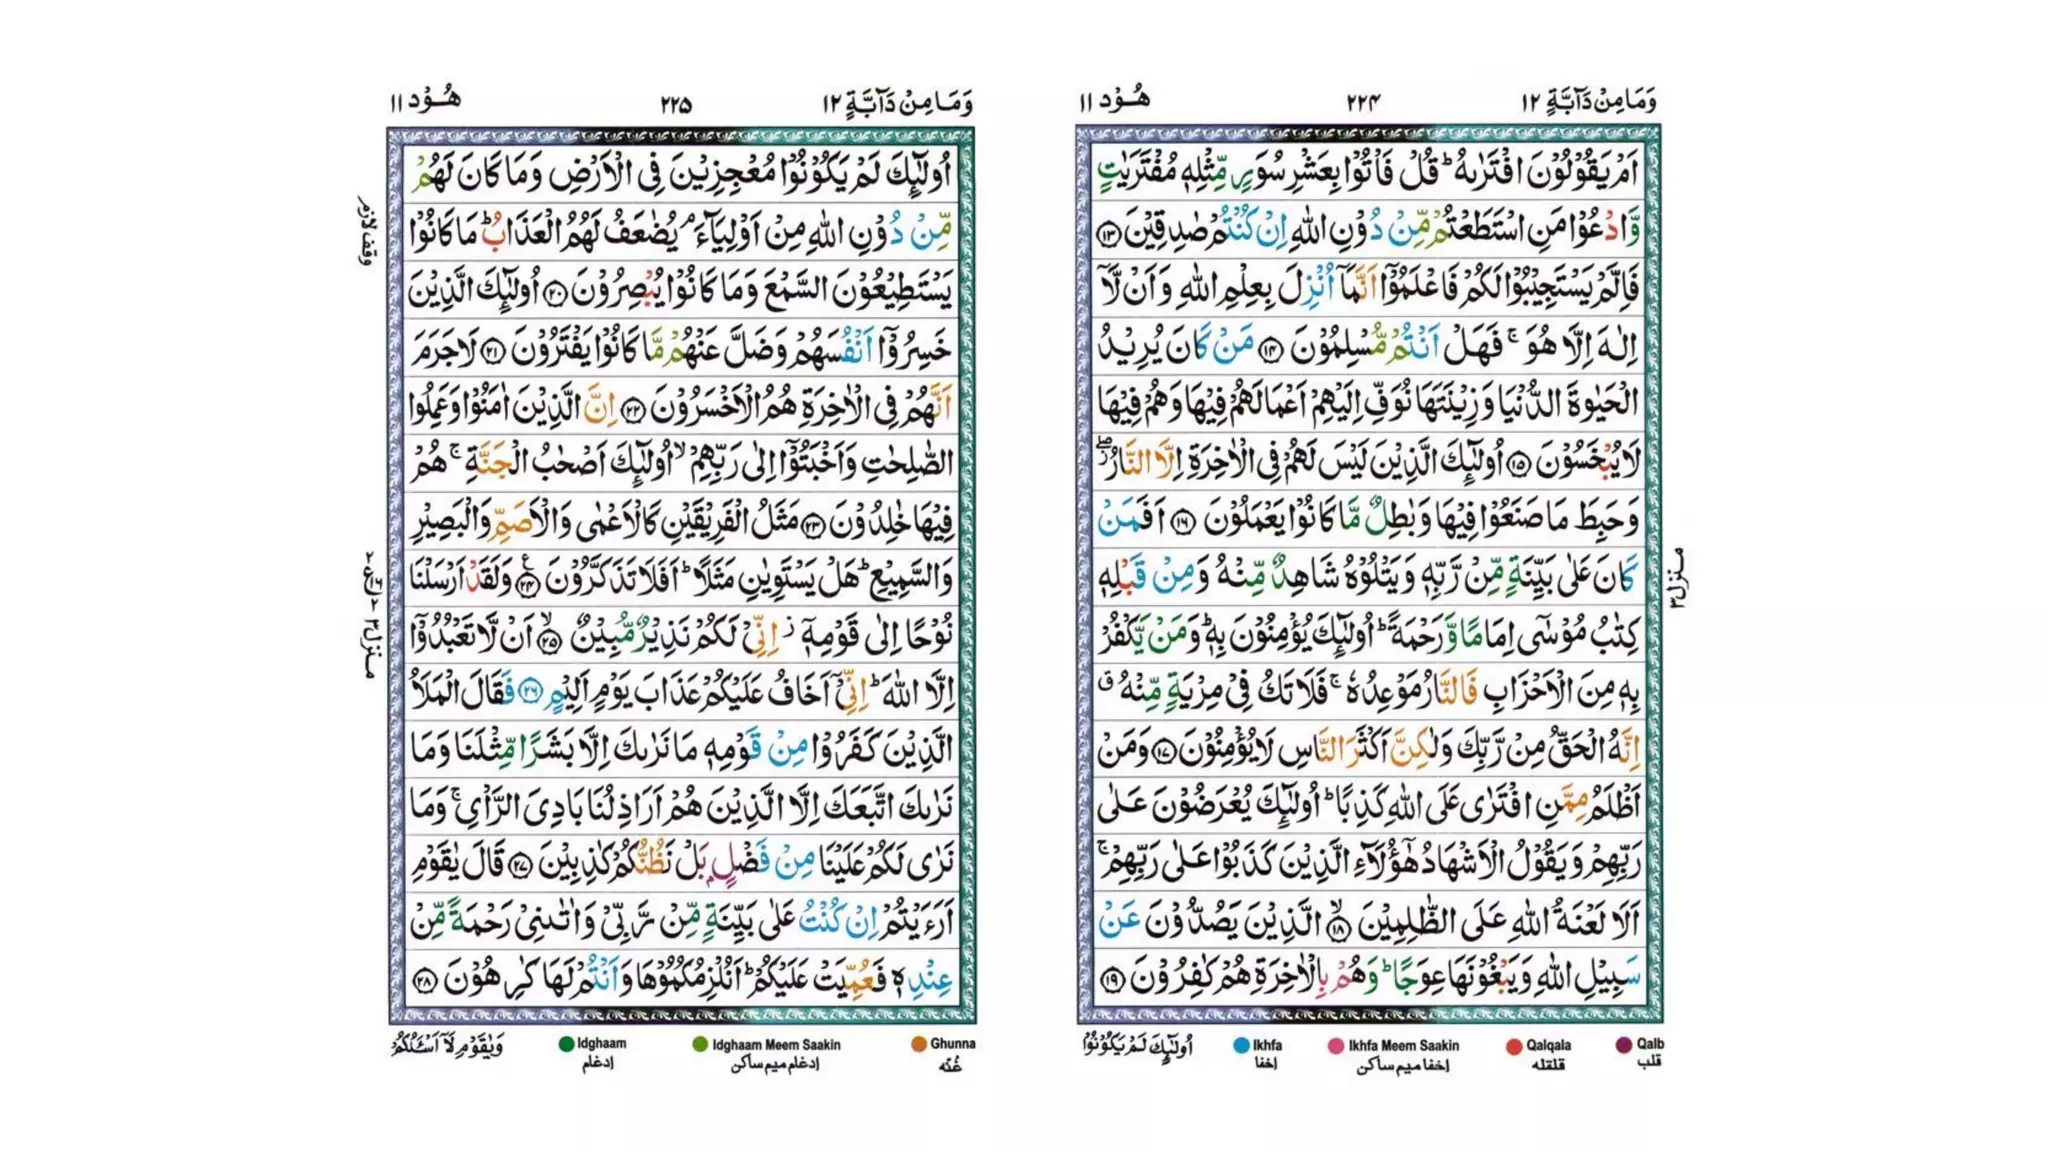 وَمَا مِنْ دَآبَّةٍ ١٢
٢٢٤
هُوْد ١١
اَمْ يَقُوْلُوْنَ افْتَرٰىهُ ؕ قُلْ فَاْتُوْا بِعَشْرِ سُوَرٍ مِّثْلِهٖ مُفْتَرَيٰتٍ
وَّادْعُوْا مَنِ اسْتَطَعْتُمْ مِّنْ دُوْنِ اللّٰهِ اِنْ كُنْتُمْ صٰدِقِيْنَ ﴿١٣﴾
فَاِلَّمْ يَسْتَجِيْبُوْا لَكُمْ فَاعْلَمُوْۤا اَنَّمَاۤ اُنْزِلَ بِعِلْمِ اللّٰهِ وَاَنْ لَّاۤ
اِلٰهَ اِلَّا هُوَ ۚ فَهَلْ اَنْتُمْ مُّسْلِمُوْنَ ﴿١٤﴾ مَنْ كَانَ يُرِيْدُ
الْحَيٰوةَ الدُّنْيَا وَزِيْنَتَهَا نُوَفِّ اِلَيْهِمْ اَعْمَالَهُمْ فِيْهَا وَهُمْ فِيْهَا
لَا يُبْخَسُوْنَ ﴿١٥﴾ اُولٰٓئِكَ الَّذِيْنَ لَيْسَ لَهُمْ فِى الْاٰخِرَةِ اِلَّا النَّارُ ۖز
وَحَبِطَ مَا صَنَعُوْا فِيْهَا وَبٰطِلٌ مَّا كَانُوْا يَعْمَلُوْنَ ﴿١٦﴾ اَفَمَنْ
كَانَ عَلٰى بَيِّنَةٍ مِّنْ رَّبِّهٖ وَيَتْلُوْهُ شَاهِدٌ مِّنْهُ وَمِنْ قَبْلِهٖ
كِتٰبُ مُوْسٰٓى اِمَامًا وَّرَحْمَةً ؕ اُولٰٓئِكَ يُؤْمِنُوْنَ بِهٖ ؕ وَمَنْ يَّكْفُرْ
بِهٖ مِنَ الْاَحْزَابِ فَالنَّارُ مَوْعِدُهٗ ۚ فَلَا تَكُ فِىْ مِرْيَةٍ مِّنْهُ ق
اِنَّهُ الْحَقُّ مِنْ رَّبِّكَ وَلٰكِنَّ اَكْثَرَ النَّاسِ لَا يُؤْمِنُوْنَ ﴿١٧﴾ وَمَنْ
اَظْلَمُ مِمَّنِ افْتَرٰى عَلَى اللّٰهِ كَذِبًا ؕ اُولٰٓئِكَ يُعْرَضُوْنَ عَلٰى
رَبِّهِمْ وَيَقُوْلُ الْاَشْهَادُ هٰٓؤُلَآءِ الَّذِيْنَ كَذَبُوْا عَلٰى رَبِّهِمْ ۚ
اَلَا لَعْنَةُ اللّٰهِ عَلَى الظّٰلِمِيْنَ ﴿١٨﴾ۙ الَّذِيْنَ يَصُدُّوْنَ عَنْ
سَبِيْلِ اللّٰهِ وَيَبْغُوْنَهَا عِوَجًا ؕ وَهُمْ بِالْاٰخِرَةِ هُمْ كٰفِرُوْنَ ﴿١٩﴾
منزل ٣
Qalb
قلب
Qalqala
قلقله
Ikhfa Meem Saakin
إخفا ميم ساكن
Ikhfa
إخفا
اُولٰٓئِكَ لَمْ يَكُوْنُوْا
وَمَا مِنْ دَآبَّةٍ ١٢
٢٢٥
هُوْد ١١
اُولٰٓئِكَ لَمْ يَكُوْنُوْا مُعْجِزِيْنَ فِى الْاَرْضِ وَمَا كَانَ لَهُمْ
مِّنْ دُوْنِ اللّٰهِ مِنْ اَوْلِيَآءَ ۘ يُضٰعَفُ لَهُمُ الْعَذَابُ ؕ مَا كَانُوْا
يَسْتَطِيْعُوْنَ السَّمْعَ وَمَا كَانُوْا يُبْصِرُوْنَ ﴿٢٠﴾ اُولٰٓئِكَ الَّذِيْنَ
خَسِرُوْۤا اَنْفُسَهُمْ وَضَلَّ عَنْهُمْ مَّا كَانُوْا يَفْتَرُوْنَ ﴿٢١﴾ لَا جَرَمَ
اَنَّهُمْ فِى الْاٰخِرَةِ هُمُ الْاَخْسَرُوْنَ ﴿٢٢﴾ اِنَّ الَّذِيْنَ اٰمَنُوْا وَعَمِلُوا
الصّٰلِحٰتِ وَاَخْبَتُوْۤا اِلٰى رَبِّهِمْ ۙ اُولٰٓئِكَ اَصْحٰبُ الْجَنَّةِ ۚ هُمْ
فِيْهَا خٰلِدُوْنَ ﴿٢٣﴾ مَثَلُ الْفَرِيْقَيْنِ كَالْاَعْمٰى وَالْاَصَمِّ وَالْبَصِيْرِ
وَالسَّمِيْعِ ؕ هَلْ يَسْتَوِيٰنِ مَثَلًا ؕ اَفَلَا تَذَكَّرُوْنَ ﴿٢٤﴾ع وَلَقَدْ اَرْسَلْنَا
نُوْحًا اِلٰى قَوْمِهٖۤ ز اِنِّىْ لَكُمْ نَذِيْرٌ مُّبِيْنٌ ﴿٢٥﴾ۙ اَنْ لَّا تَعْبُدُوْۤا
اِلَّا اللّٰهَ ؕ اِنِّىْۤ اَخَافُ عَلَيْكُمْ عَذَابَ يَوْمٍ اَلِيْمٍ ﴿٢٦﴾ فَقَالَ الْمَلَاُ
الَّذِيْنَ كَفَرُوْا مِنْ قَوْمِهٖ مَا نَرٰىكَ اِلَّا بَشَرًا مِّثْلَنَا وَمَا
نَرٰىكَ اتَّبَعَكَ اِلَّا الَّذِيْنَ هُمْ اَرَاذِلُنَا بَادِىَ الرَّاْىِ ۚ وَمَا
نَرٰى لَكُمْ عَلَيْنَا مِنْ فَضْلٍۭ بَلْ نَظُنُّكُمْ كٰذِبِيْنَ ﴿٢٧﴾ قَالَ يٰقَوْمِ
اَرَءَيْتُمْ اِنْ كُنْتُ عَلٰى بَيِّنَةٍ مِّنْ رَّبِّىْ وَاٰتٰىنِىْ رَحْمَةً مِّنْ
عِنْدِهٖ فَعُمِّيَتْ عَلَيْكُمْ ؕ اَنُلْزِمُكُمُوْهَا وَاَنْتُمْ لَهَا كٰرِهُوْنَ ﴿٢٨﴾
وقف لازم
منزل ٣
Ghunna
غُنّه
Idghaam Meem Saakin
إدغام ميم ساكن
Idghaam
إدغام
وَيٰقَوْمِ لَاۤ اَسْـَٔلُكُمْ